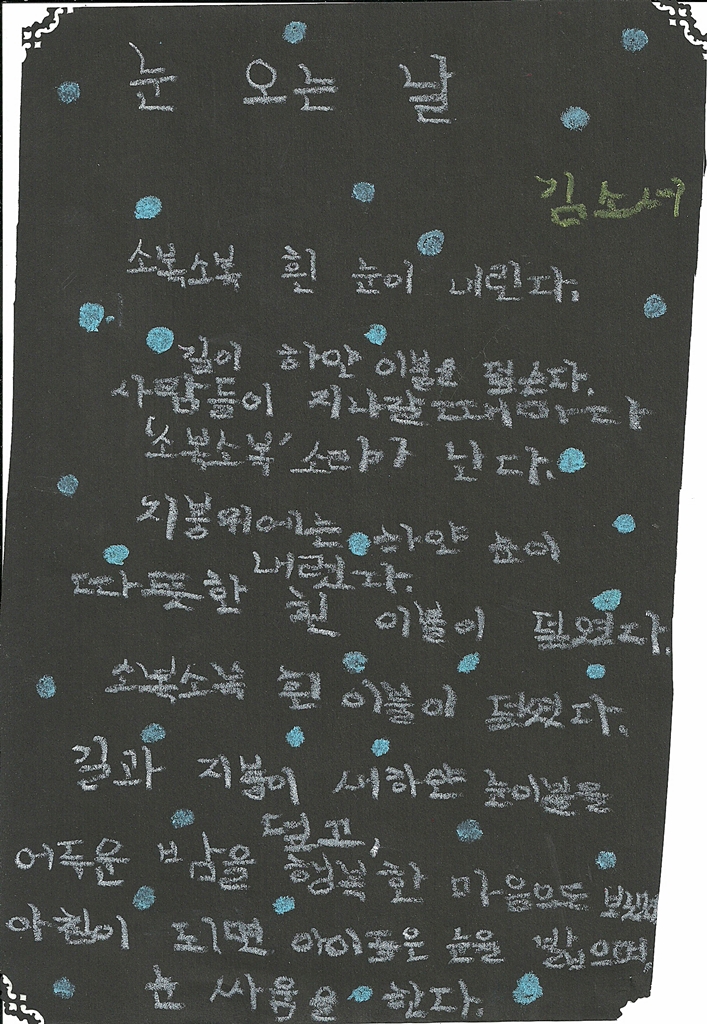 눈 오는 날
김소서
소복소복 흰 눈이 내린다.
길이 하얀 이불을 덮습다.
사람들이 지나갈때마다
'소복소복' 소리가 난다.
지붕위에는 하얀 눈이
내렸다.
따듯한 흰 이불이 덮였다.
소복소복 흰 이불이 덮였다.
길과 지붕이 새하얀 눈이불을
덮고,
어두운 밤을 행복한 마음으로
아침이 되면 아이들은 눈을 밟으며
눈 싸움을 한다.